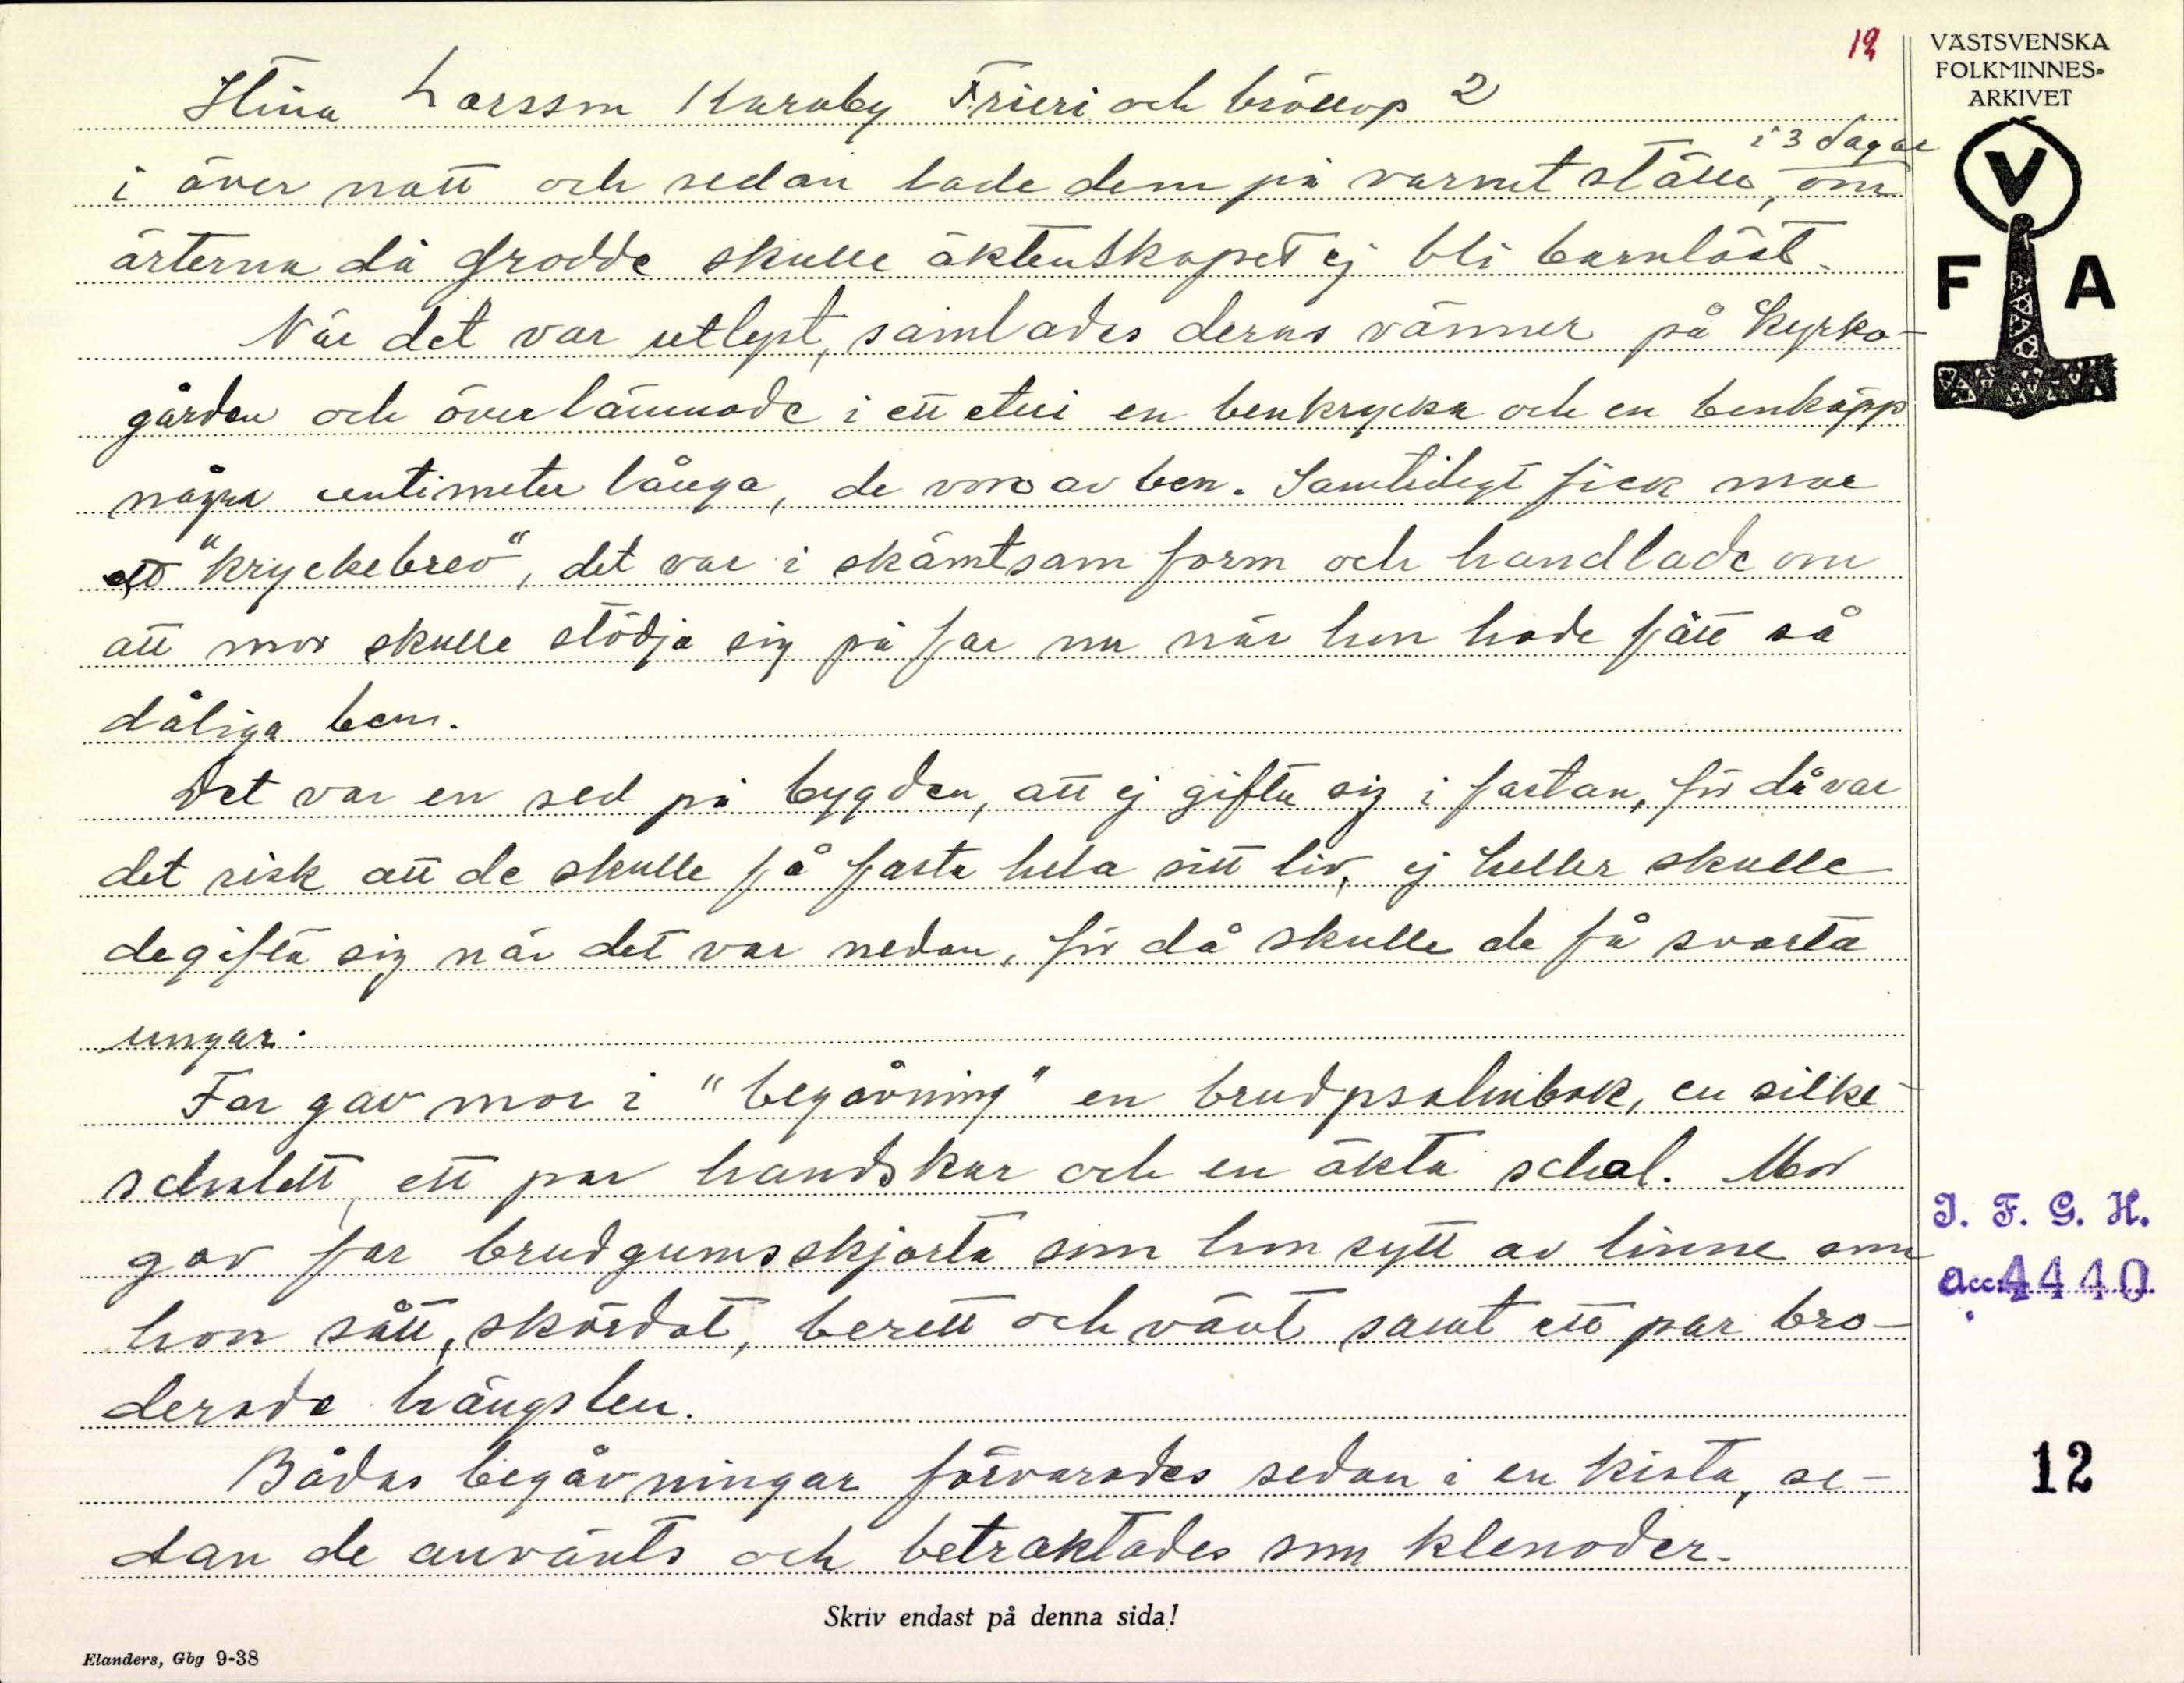 12
VÄSTSVENSKA
FOLKMINNES-
ARKIVET
V
F A
Stina Larsson Karaby Frieri och bröllop 2
i 3 dagar
i över natt och sedan lade dem på varmt ställe, om
ärterna då grodde skulle äktenskapet ej bli barnlöst.
När det var utlyst, samlades deras vänner på kyrko-
gården och överlämnade i ett etui en benkrycka och en benkäpp
några centimeter långa, de voro av ben. Samtidigt fick mor
ett "kryckebrev", det var i skämtsam form och handlade om
att mor skulle stödja sig på far nu när hon hade fått så
dåliga ben.
Det var en sed på bygden, att ej gifta sig i fastan, för då var
det risk att de skulle få fasta hela sitt liv, ej heller skulle
de gifta sig när det var nedan, för då skulle de få svarta
ungar.
Far gav mor i "begåvning" en brudpsalmbok, en silke-
schalett, ett par handskar och en äkta schal. Mor
gav far brudgumsskjorta som hon sytt av linne som
hon sått, skördat, berett och vävt samt ett par bro-
derade hängslen.
Bådas begåvningar förvarades sedan i en kista, se-
dan de använts och betraktades som klenoder.
I. F. G. H.
Acc. 4440
12
Skriv endast på denna sida!
Elanders, Gbg 9-38